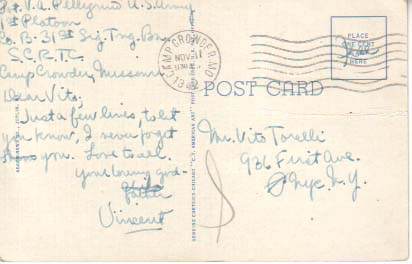 Pvt. V.A. Pellegrino U.S. Army
1st Platoon
Co. B - 31st Sig. Tng. Bn.
S.C.R.T.C.
Camp Crowder, Missouri
Dear Vito.
Just a few lines, to let
you know, I never forget
you. Love to all.
your loving god-
father
Vincent
CAMP CROWDER, MO.
NOV 11
PLACE
ONE CENT
STAMP
HERE
Free
POST CARD
Mr. Vito Torelli
936 First Ave.
Nyc. N.Y.
GENUINE CURTEICH-CHICAGO "C.T. AMERICAN ART"